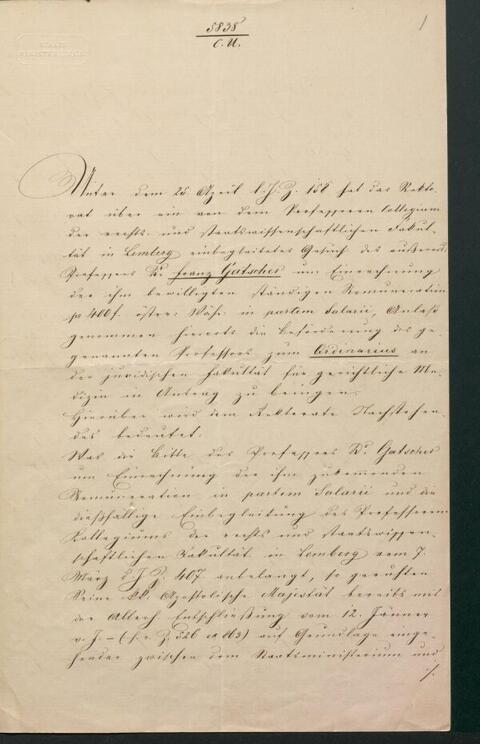 5838
C.U.
1
Unter dem 25. April l. J. Z. 158 hat das Rekto-
rat über ein von dem Professoren Collegium
der rechts- und staatswissenschaftlichen Fakul-
tät in Lemberg einbegleitetes Gesuch des außerord.
Professors Dr. Franz Gatscher um Einrechnung
der ihm bewilligten ständigen Remuneration
pr 400 f. österr: Währ: in partem Salarii, Anlaß
genommen hierorts die Beförderung des ge-
genannten Professors zum Ordinarius an
der juridischen Fakultät für gerichtliche Me-
dizin in Antrag zu bringen.
Hierüber wird dem Rektorate Nachstehen-
des bedeutet:
Was die Bitte des Professors Dr. Gatscher
um Einrechnung der ihm zukommenden
Remuneration in partem Salarii und die
dießfällige Einbegleitung des Professoren
Kollegiums der rechts und staatswissen-
schaftlichen Fakultät in Lemberg vom 7.
März l. J. Z. 407. anbelangt, so geruhten
Seine kk. Apostolische Majestät bereits mit
der Allerh. Entschließung vom 12. Jänner
v. J. - ( Z. 526 ) auf Grundlage einge-
hender zwischen dem Staatsministerium und
./.